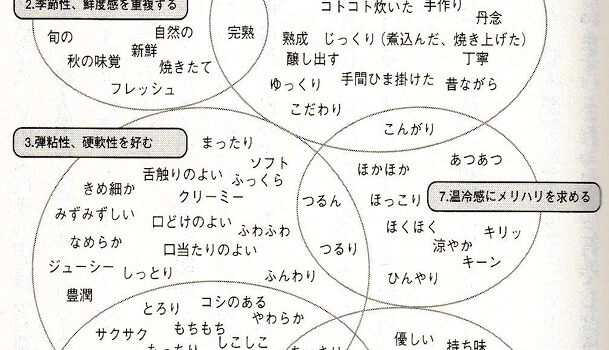 2.季節性、鮮度感を重複する
コトコト炊いた
手作り
丹念
旬の
自然の
完熟
新鮮
秋の味覚
焼きたて
フレッシュ
熟成
じっくり(煮込んだ、焼き上げた)
醸し出す
丁寧
ゆっくり
手間ひま掛けた
昔ながら
こだわり
こんがり
3.弾粘性、硬軟性を好む
まったり
ソフト
舌触りのよい
ふっくら
きめ細か
クリーミー
みずみずしい
口どけのよい
ふわふわ
なめらか
口当たりのよい
ジューシー
しっとり
ふんわり
豊潤
つるん
つるり
あつあつ
ほかほか
ほっこり
7.温冷感にメリハリを求める
ほくほく
キリッ
涼やか
キーン
ひんやり
とろり
コシのある
やわらか
サクサク
もちもち
しこしこ
優しい
持ち味